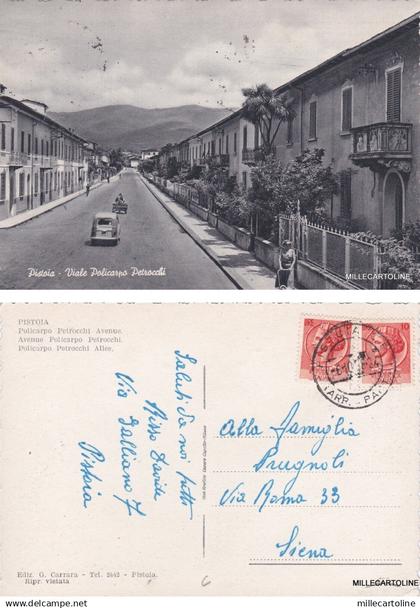 MILLECARTOLINE
Pistoia - Viale Policarpo Petrocchi
MILLECARTOLINE
PISTOIA
Policarpo Petrocchi Avenue.
Avenue Policarpo Petrocchi.
Policarpo Petrocchi Allee.
Saluti da noi tutti
Via Galliano 7
Pistoia
Alla famiglia
Prugnoli
Via Roma 33
Siena
Ediz. G. Carrara - Tel. 2642 - Pistoia.
Ripr. vietata
MILLECARTOLINE